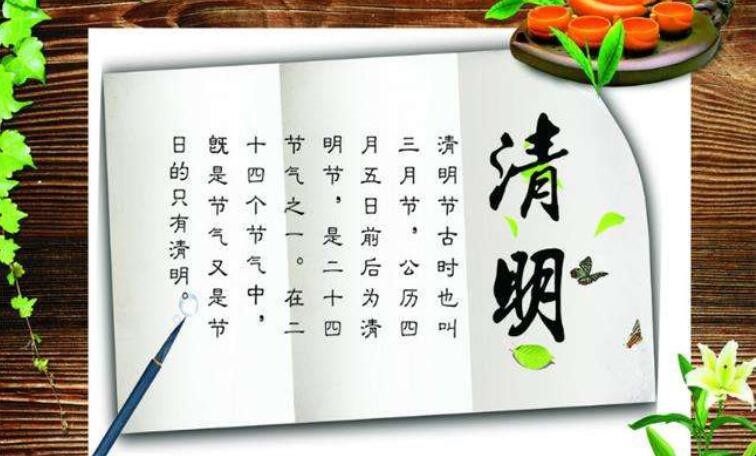 清明
清明节古时也叫
三月节，公历四
月五日前后为清
明节，是二十四
节气之一。在二
十四个节气中，
既是节气又是节
日的只有清明。